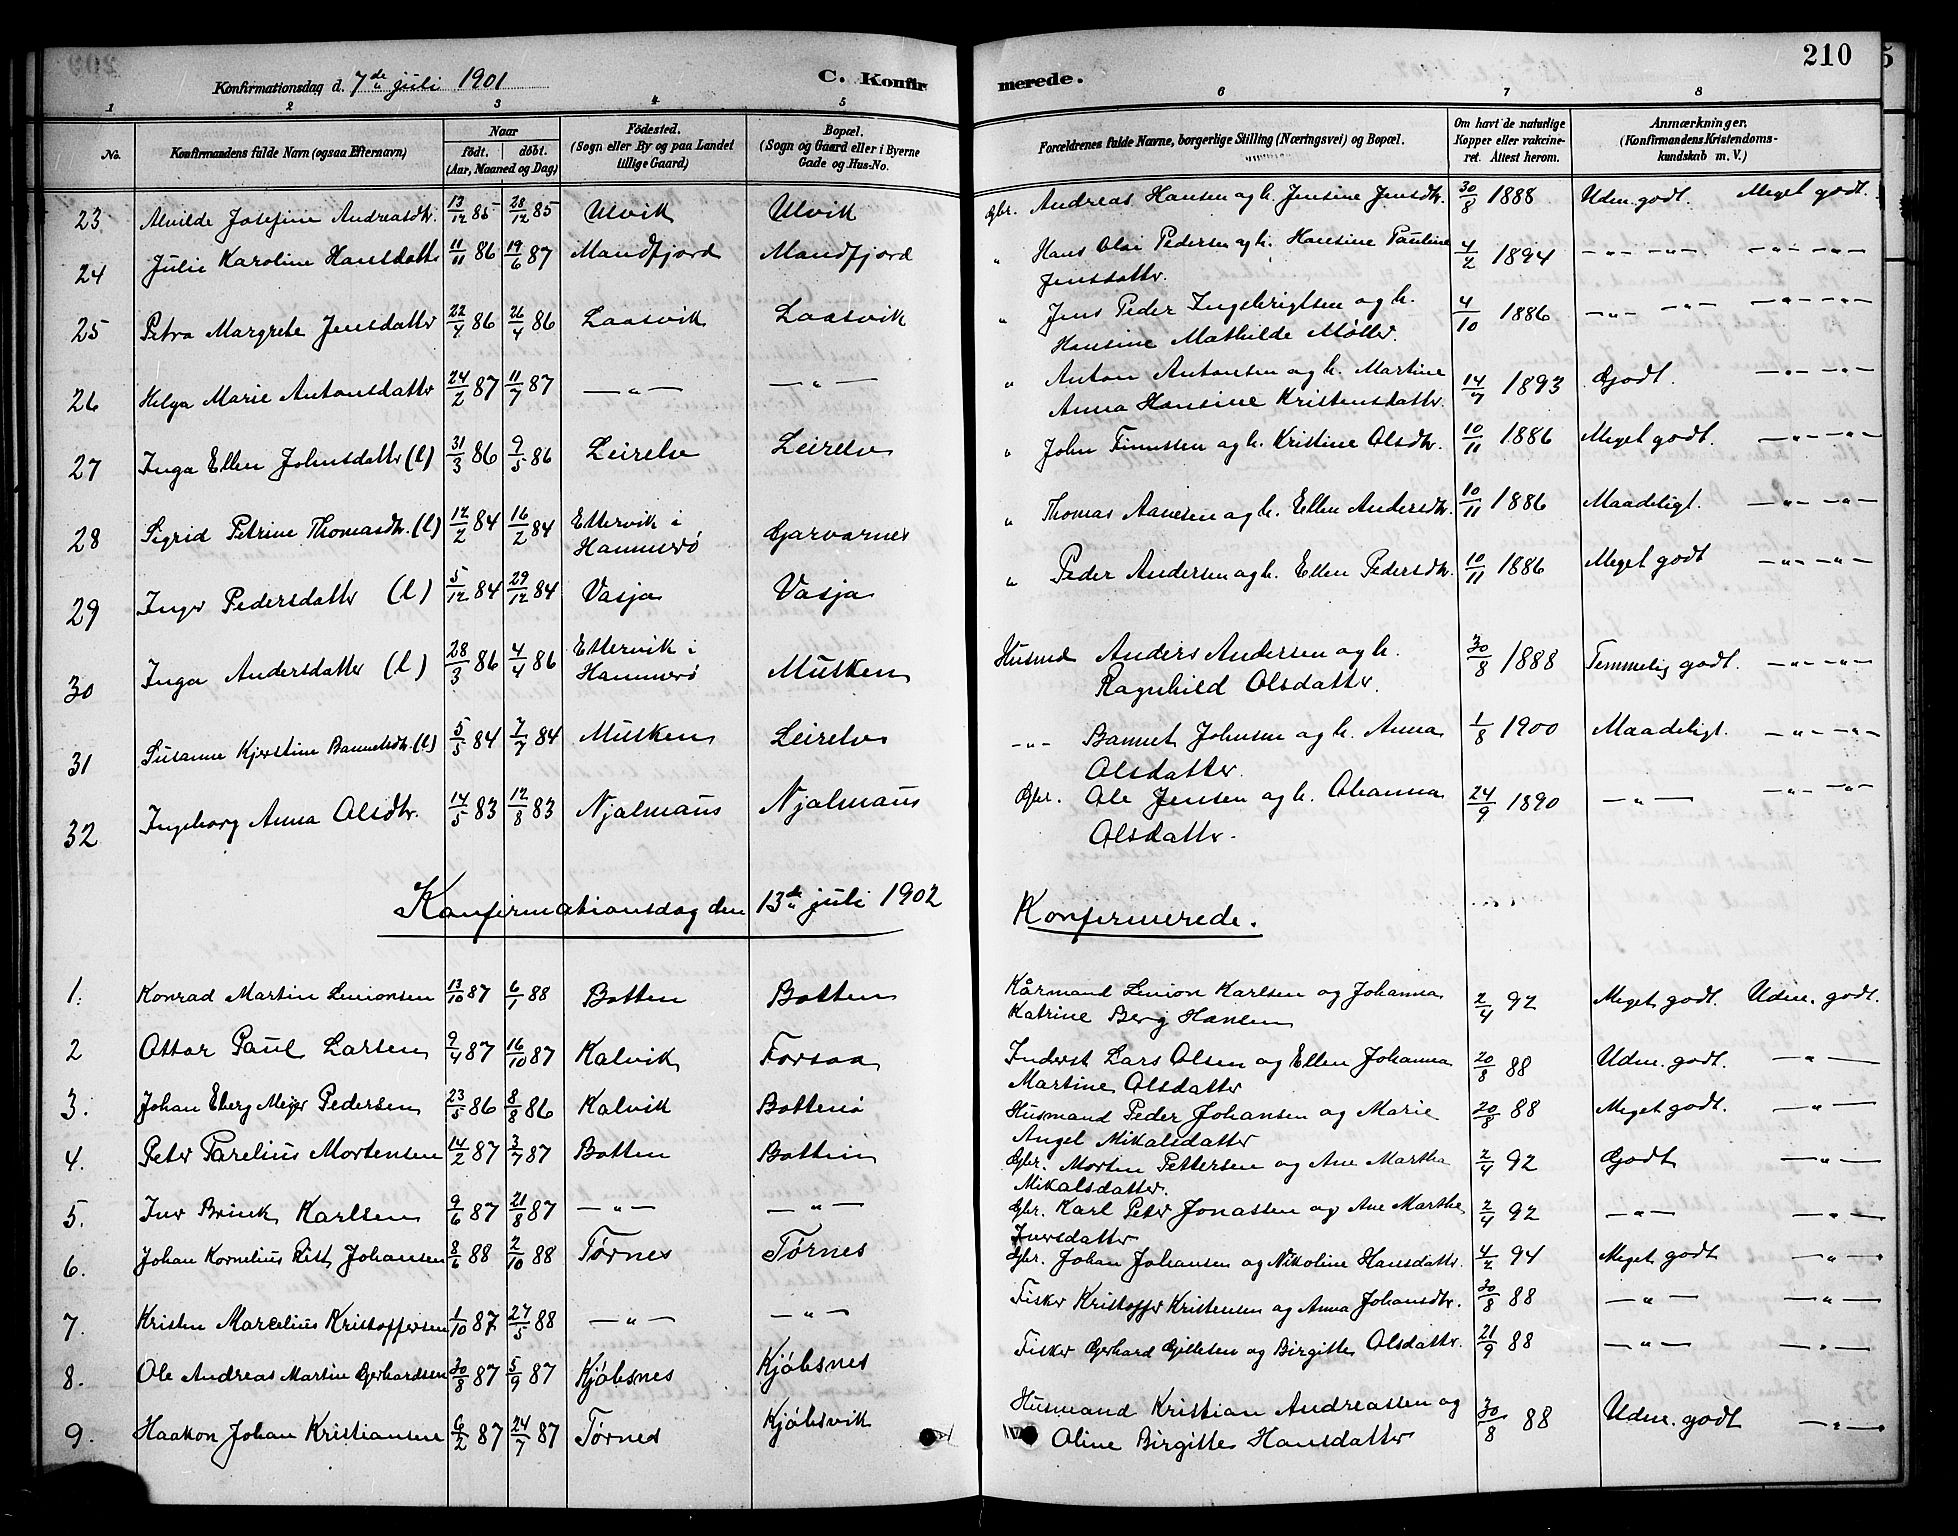 210
Konfirmationsdag d. 7de juli 1901
C. Konfirmerede.
1 2 3 4 5 6 7 8
No. Konfirmandens fulde Navn (ogsaa Efternavn) Naar født. døbt. (Aar, Maaned og Dag) Fødested. (Sogn eller By og paa Landet tillige Gaard) Bopæl. (Sogn og Gaard eller i Byerne Gade og Hus-No. Forældrenes fulde Navne, borgerlige Stilling (Næringsvei) og Bopæl. Om havt de naturlige Kopper eller vakcineret. Attest herom. Anmærkninger. (Konfirmandens Kristendomskundskab m. V.)
23 Alvilde Josefine Andreasdtr. 13/12 85 28/12 85 Ulvik Ulvik Gbr. Andreas Hansen og h. Jensine Jensdtr. 30/8 1888 Udm. godt. Meget godt.
24 Julie Karoline Hansdatter 11/11 86 19/6 87 Mandfjord Mandfjord " Hans Olai Pedersen og h. Hansine Pauline Jensdatter. 4/2 1894 —"— —"— —"— —"—
25 Petra Margrete Jensdatter 22/4 86 26/4 86 Laasvik Laasvik " Jens Peder Ingebrigtsen og h. Hansine Mathilde Møller. 4/10 1886 —"— —"— —"— —"—
26 Helga Marie Antonsdatter 24/2 87 11/7 87 —"— —"— " Anton Antonsen og h. Martine Anna Hansine Kristensdatter. 14/7 1893 Godt. —"— —"—
27 Inga Ellen Johnsdatter (l) 31/3 86 9/5 86 Leirelv Leirelv " John Finnssen og h. Kristine Olsdtr. 10/11 1886 Meget godt. —"— —"—
28 Sigrid Petrine Thomasdtr. (l) 12/2 84 16/2 84 Ettervik i Hammerø Gjarvarnes " Thomas Aanesen og h. Ellen Andersdtr. 10/11 1886 Maadeligt. —"— —"—
29 Inger Pedersdatter (l) 5/12 84 29/12 84 Vasja Vasja " Peder Andersen og h. Ellen Pedersdtr. 10/11 1886 Meget godt —"— —"—
30 Inga Andersdatter (l) 28/3 86 4/4 86 Ettervik i Hammerø Musken Husmd Anders Andersen og h. Ragnhild Olsdatter. 30/8 1888 Temmelig godt. —"— —"—
31 Susanne Kjerstine Bannetsdtr. (l) 5/5 84 7/7 84 Musken Leirelv —"— Bannet Johnsen og h. Anna Olsdatter. 1/8 1900 Maadeligt. —"— —"—
32 Ingeborg Anna Olsdtr. 14/5 83 12/8 83 Njalmaus Njalmaus Gbr. Ole Jensen og h. Ohanna Olsdatter. 24/9 1890 —"— —"— —"—
Konfirmationsdag den 13de juli 1902 Konfirmerede.
1. Konrad Martin Simonsen 13/10 87 6/1 88 Botten Botten Kårmand Simon Karlsen og Johanna Katrine Berg Hansen 2/4 92 Meget godt. Udm. godt.
2 Ottar Paul Larsen 9/4 87 16/10 87 Kalvik Forsaa Inderst Lars Olsen og Ellen Johanna Martine Olsdatter 20/8 88 Udm. godt. —"—
3. Johan Eberg Meyer Pedersen 23/5 86 8/8 86 Kalvik Botten Husmand Peder Johansen og Marie Angel Mikalsdatter 20/8 88 Meget godt. —"—
4. Peter Parelius Mortensen 14/2 87 3/7 87 Botten Botten Gbr. Morten Pettersen og Ane Martha Mikalsdatter. 2/4 92 Godt —"—
5. Iver Brink Karlsen 9/6 87 21/8 87 —"— —"— Gbr. Karl Peter Jonassen og Ane Marthe Iversdatter 2/4 92 —"— —"—
6. Johan Kornelius Rist Johansen 8/6 88 2/10 88 Tørnes Tørnes Gbr. Johan Johansen og Nikoline Hansdatter. 4/2 94 Meget godt —"—
7. Kristen Marcelius Kristoffersen 1/10 87 27/5 88 —"— —"— Fisker Kristoffer Kristensen og Anna Johansdtr. 30/8 88 —"— —"—
8. Ole Andreas Martin Gerhardsen 30/8 87 5/9 87 Kjøbsnes Kjøbsnes Fisker Gerhard Gillesen og Birgitte Olsdatter. 21/9 88 —"— —"—
9. Haakon Johan Kristiansen 6/2 87 24/7 87 Tørnes Kjøbsvik Husmand Kristian Andreassen og Oline Birgitte Hansdatter 30/8 88 Udm. godt —"—